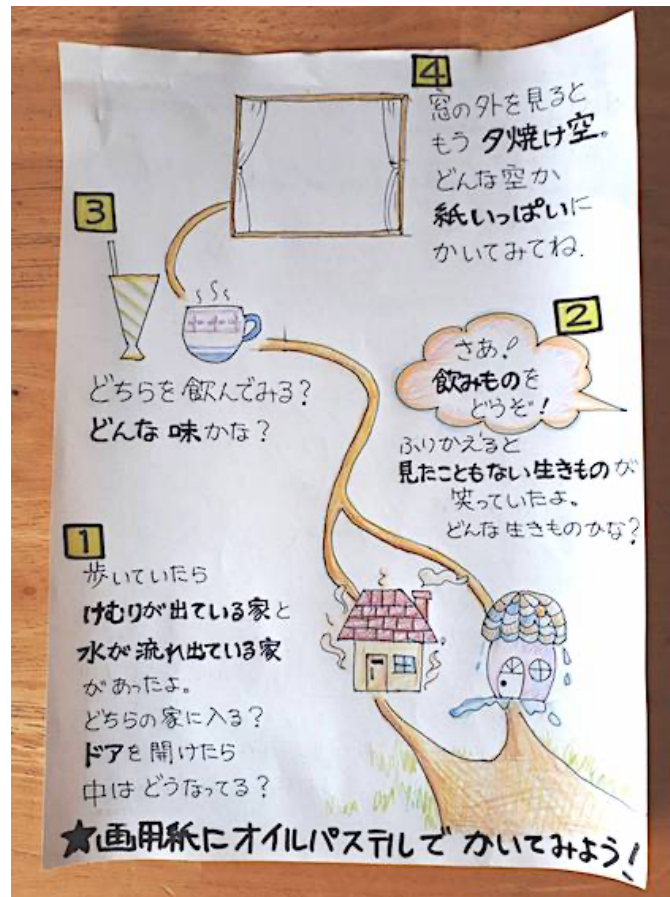 4
窓の外を見ると
もう夕焼け空。
どんな空か、
紙いっぱいに
かいてみてね.
3
どちらを飲んでみる?
どんな味かな?
2
さあ!
飲みものを
どうぞ!
ふりかえると
見たこともない生きものが
笑っていたよ。
どんな生きものかな?
1
歩いていたら
けむりが出ている家と
水が流れ出ている家
があったよ。
どちらの家に入る?
ドアを開けたら
中はどうなってる?
★画用紙にオイルパステルでかいてみよう!